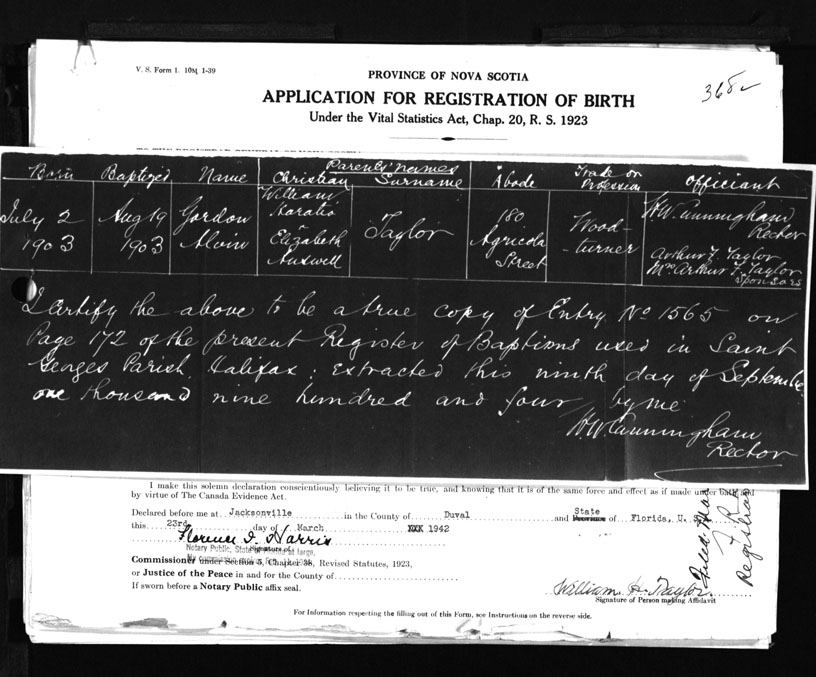 V. S. Form 1. 10M 1-39
PROVINCE OF NOVA SCOTIA
368
APPLICATION FOR REGISTRATION OF BIRTH
Under the Vital Statistics Act, Chap. 20, R. S. 1923
Born Baptized Name Parents' names Christian Surname Abode Trade or Profession Officiant
July 2 1903
Aug 19 1903
Gordon Alvin
William Horatio
Elizabeth
Taylor
180 Agricola Street
Wood-turner
H W Cunningham Rector
Arthur F. Taylor
Mrs Arthur F. Taylor
Sponsors
I certify the above to be a true copy of Entry No 1565 on
Page 172 of the present Register of Baptisms used in Saint
Georges Parish, Halifax: Extracted this ninth day of September
one thousand nine hundred and four by me
H. W. Cunningham
Rector
I make this solemn declaration conscientiously believing it to be true, and knowing that it is of the same force and effect as if made under oath and
by virtue of The Canada Evidence Act.
Declared before me at Jacksonville in the County of Duval and State Province of Florida, U. S.
this 23rd day of March 1942
Florence I. Harris
Notary Public, State of at large,
Signature of
Commissioner under Section 5, Chapter 38, Revised Statutes, 1923,
or Justice of the Peace in and for the County of
If sworn before a Notary Public affix seal.
William H. Taylor
Signature of Person making Affidavit
Registrar
For Information respecting the filling out of this Form, see Instructions on the reverse side.